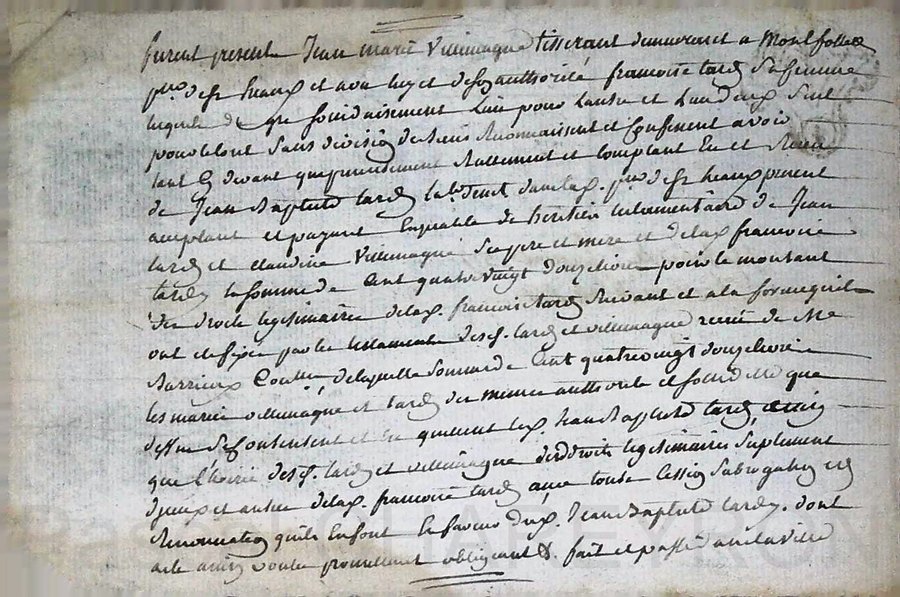 furent present Jean marie Villemagne tisserant demeurant a Montfollet
psse. de st. heaux et avec luy et de son authorité francoise tardy sa femme
lesquels de gre solidairement l'un pour l'autre et l'un d'eux seul
pour le tout sans division de leurs reconnaissent et confessent avoir
tant cy devant que presentement reellement et comptant eu et receu
de Jean Baptiste tardy lab. dud. lieu psse. de st. heaux present
acceptant et payant en qualité de heritier testamentaire de Jean
tardy et claudine Villemagne ses pere et mere et de lad. francoise
tardy la somme de cent quatre vingt douze livres pour le montant
des droits legitimaires de lad. francoise tardy suivant et a la forme qu'ils
ont été fixés par les testaments desd. tardy et villemagne receu de Me
Barrieux de laquelle somme de cent quatre vingt douze livres
les mariés villemagne et tardy de meme authorité que
dessus se contentent et en quittent led. Jean Baptiste tardy ainsi
que l'hoirie desd. tardy et villemagne desd. droits legitimaires suplement
d'yceux et autres de lad. francoise tardy avec toute cession subrogation et
renonciation qu'ils en font en faveur dud. Jean Baptiste tardy. dont
acte ainsi voulu promettant obligeant &. fait et passé en la ville